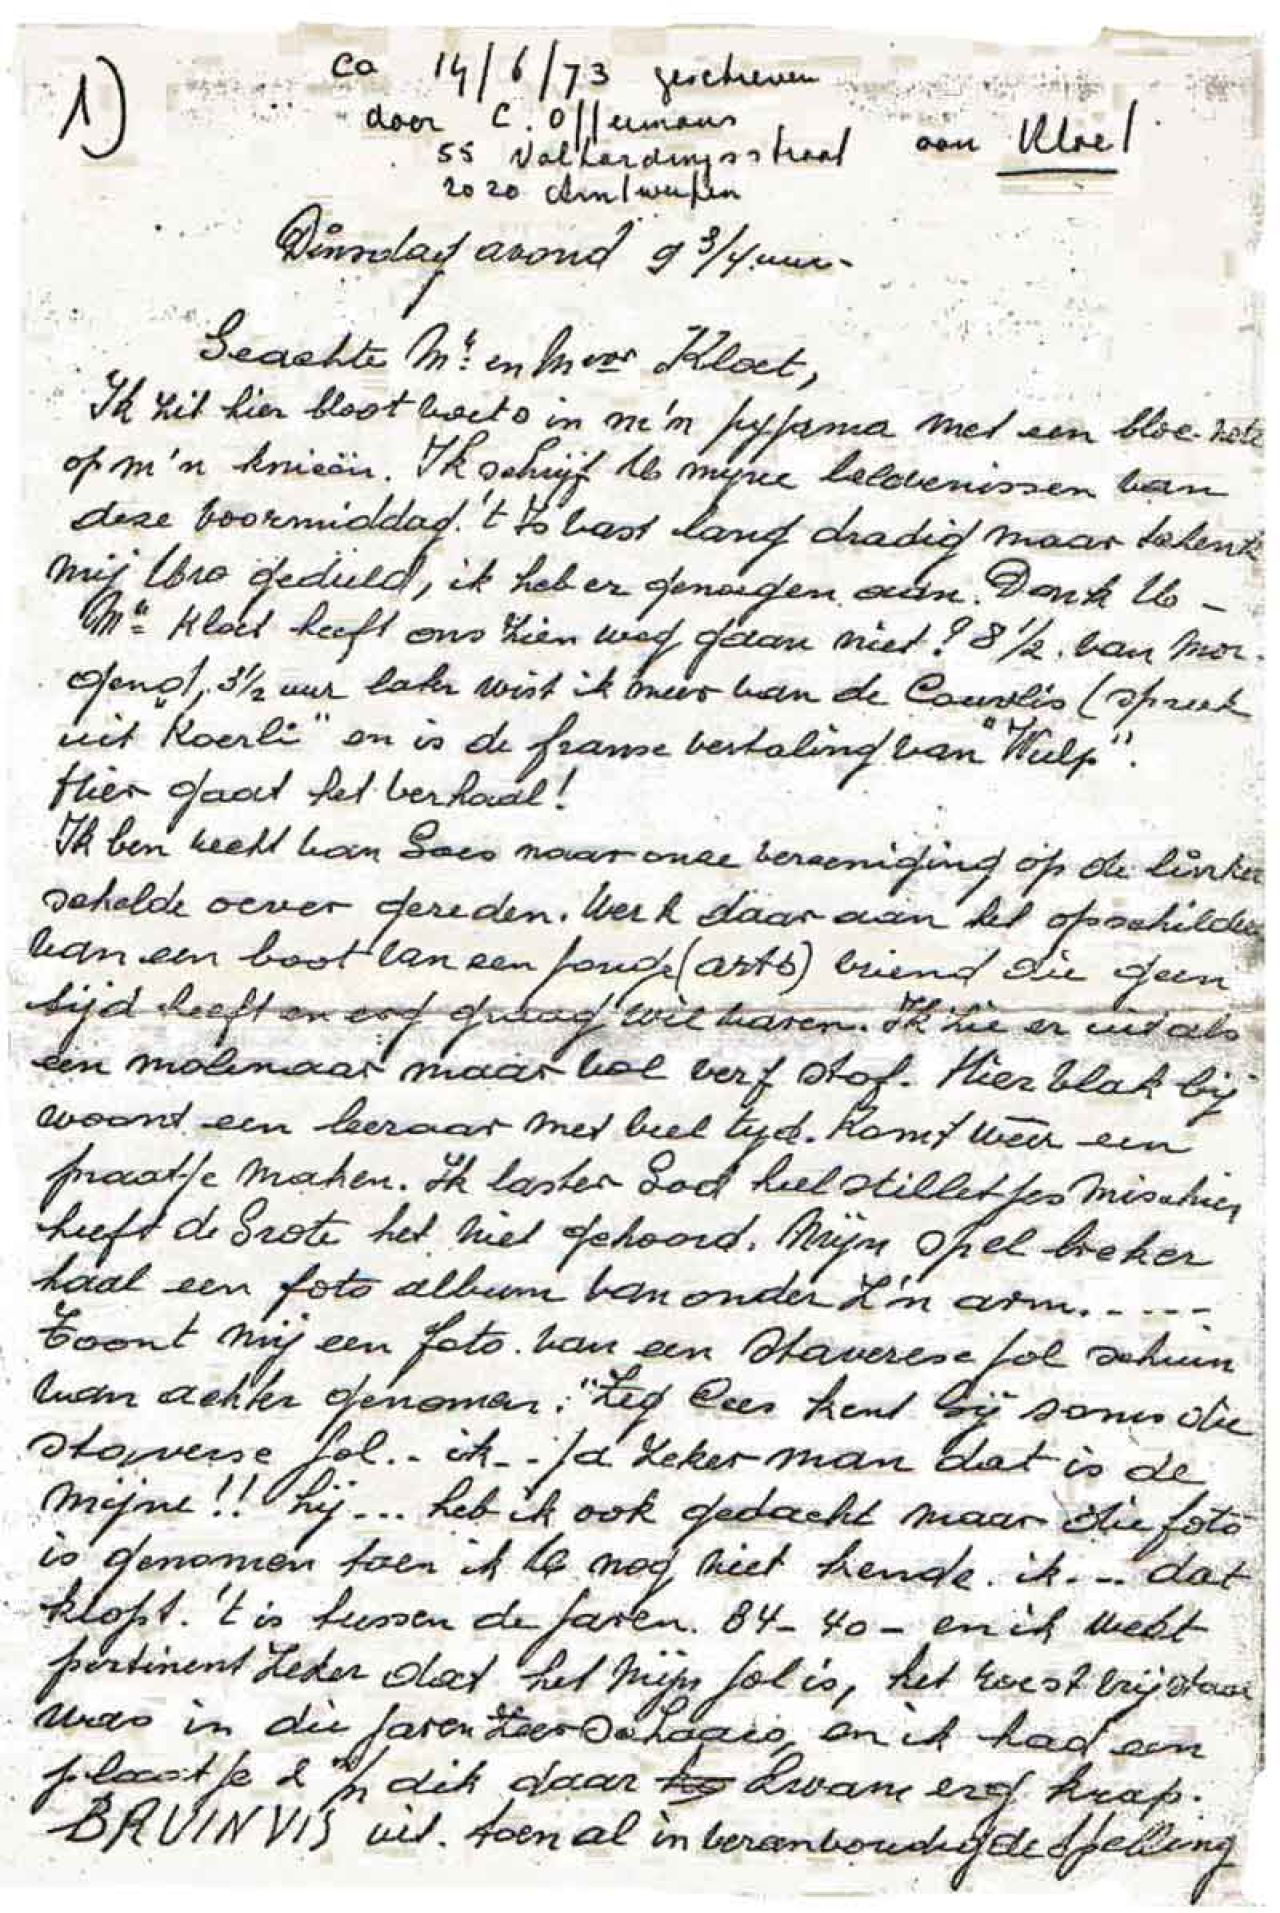 1)
ca 14/6/73 geschreven
door C. Offermans
aan Kloet
55 Volhardingsstraat
2020 Antwerpen
Dinsdag avond 9 3/4 uur.
Geachte Mr. en Mevr Kloet,
Ik zit hier blootvoets in m'n pyjama met een bloc-note
op m'n knieën. Ik schrijf U mijne belevenissen van
deze voormiddag. 't Is vast lang dradig maar schenk
mij Uw geduld, ik heb er genoegen aan. Dank U -
Mr Kloet heeft ons zien weg gaan niet? 8 1/2. van mor-
gend, 3 1/2 uur later wist ik meer van de Courlis (spreek
uit "Koerli" en is de franse vertaling van "Wulp".
Hier gaat het verhaal!
Ik ben recht van Goes naar onze vereeniging op de linker
schelde oever gereden. Werk daar aan het opschilderen
van een boot van een jonge (arts) vriend die geen
tijd heeft en erg graag wil varen. Ik zie er uit als
een molenaar maar vol verf stof. Hier vlak bij
woont een leeraar met veel tijd. Komt weer een
praatje maken. Ik laster God heel stilletjes misschien
heeft de Grote het niet gehoord. Mijn spel breker
haal een foto album van onder z'n arm.....
Toont mij een foto van een Staverese jol schuin
van achter genomen: "Zeg Cees kent gij soms die
staverse jol.. ik.. ja zeker man dat is de
mijne!! hij... heb ik ook gedacht maar die foto
is genomen toen ik U nog niet kende. ik... dat
klopt. 't is tussen de jaren. 34-40- en ik weet
pertinent zeker dat het mijn jol is, het roest vrij staal
was in die jaren zeer schaars, en ik had een
plaatje 2 m/m dik daar kwam erg knap.
BRUINVIS uit. toen al in vereenvoudigde spelling